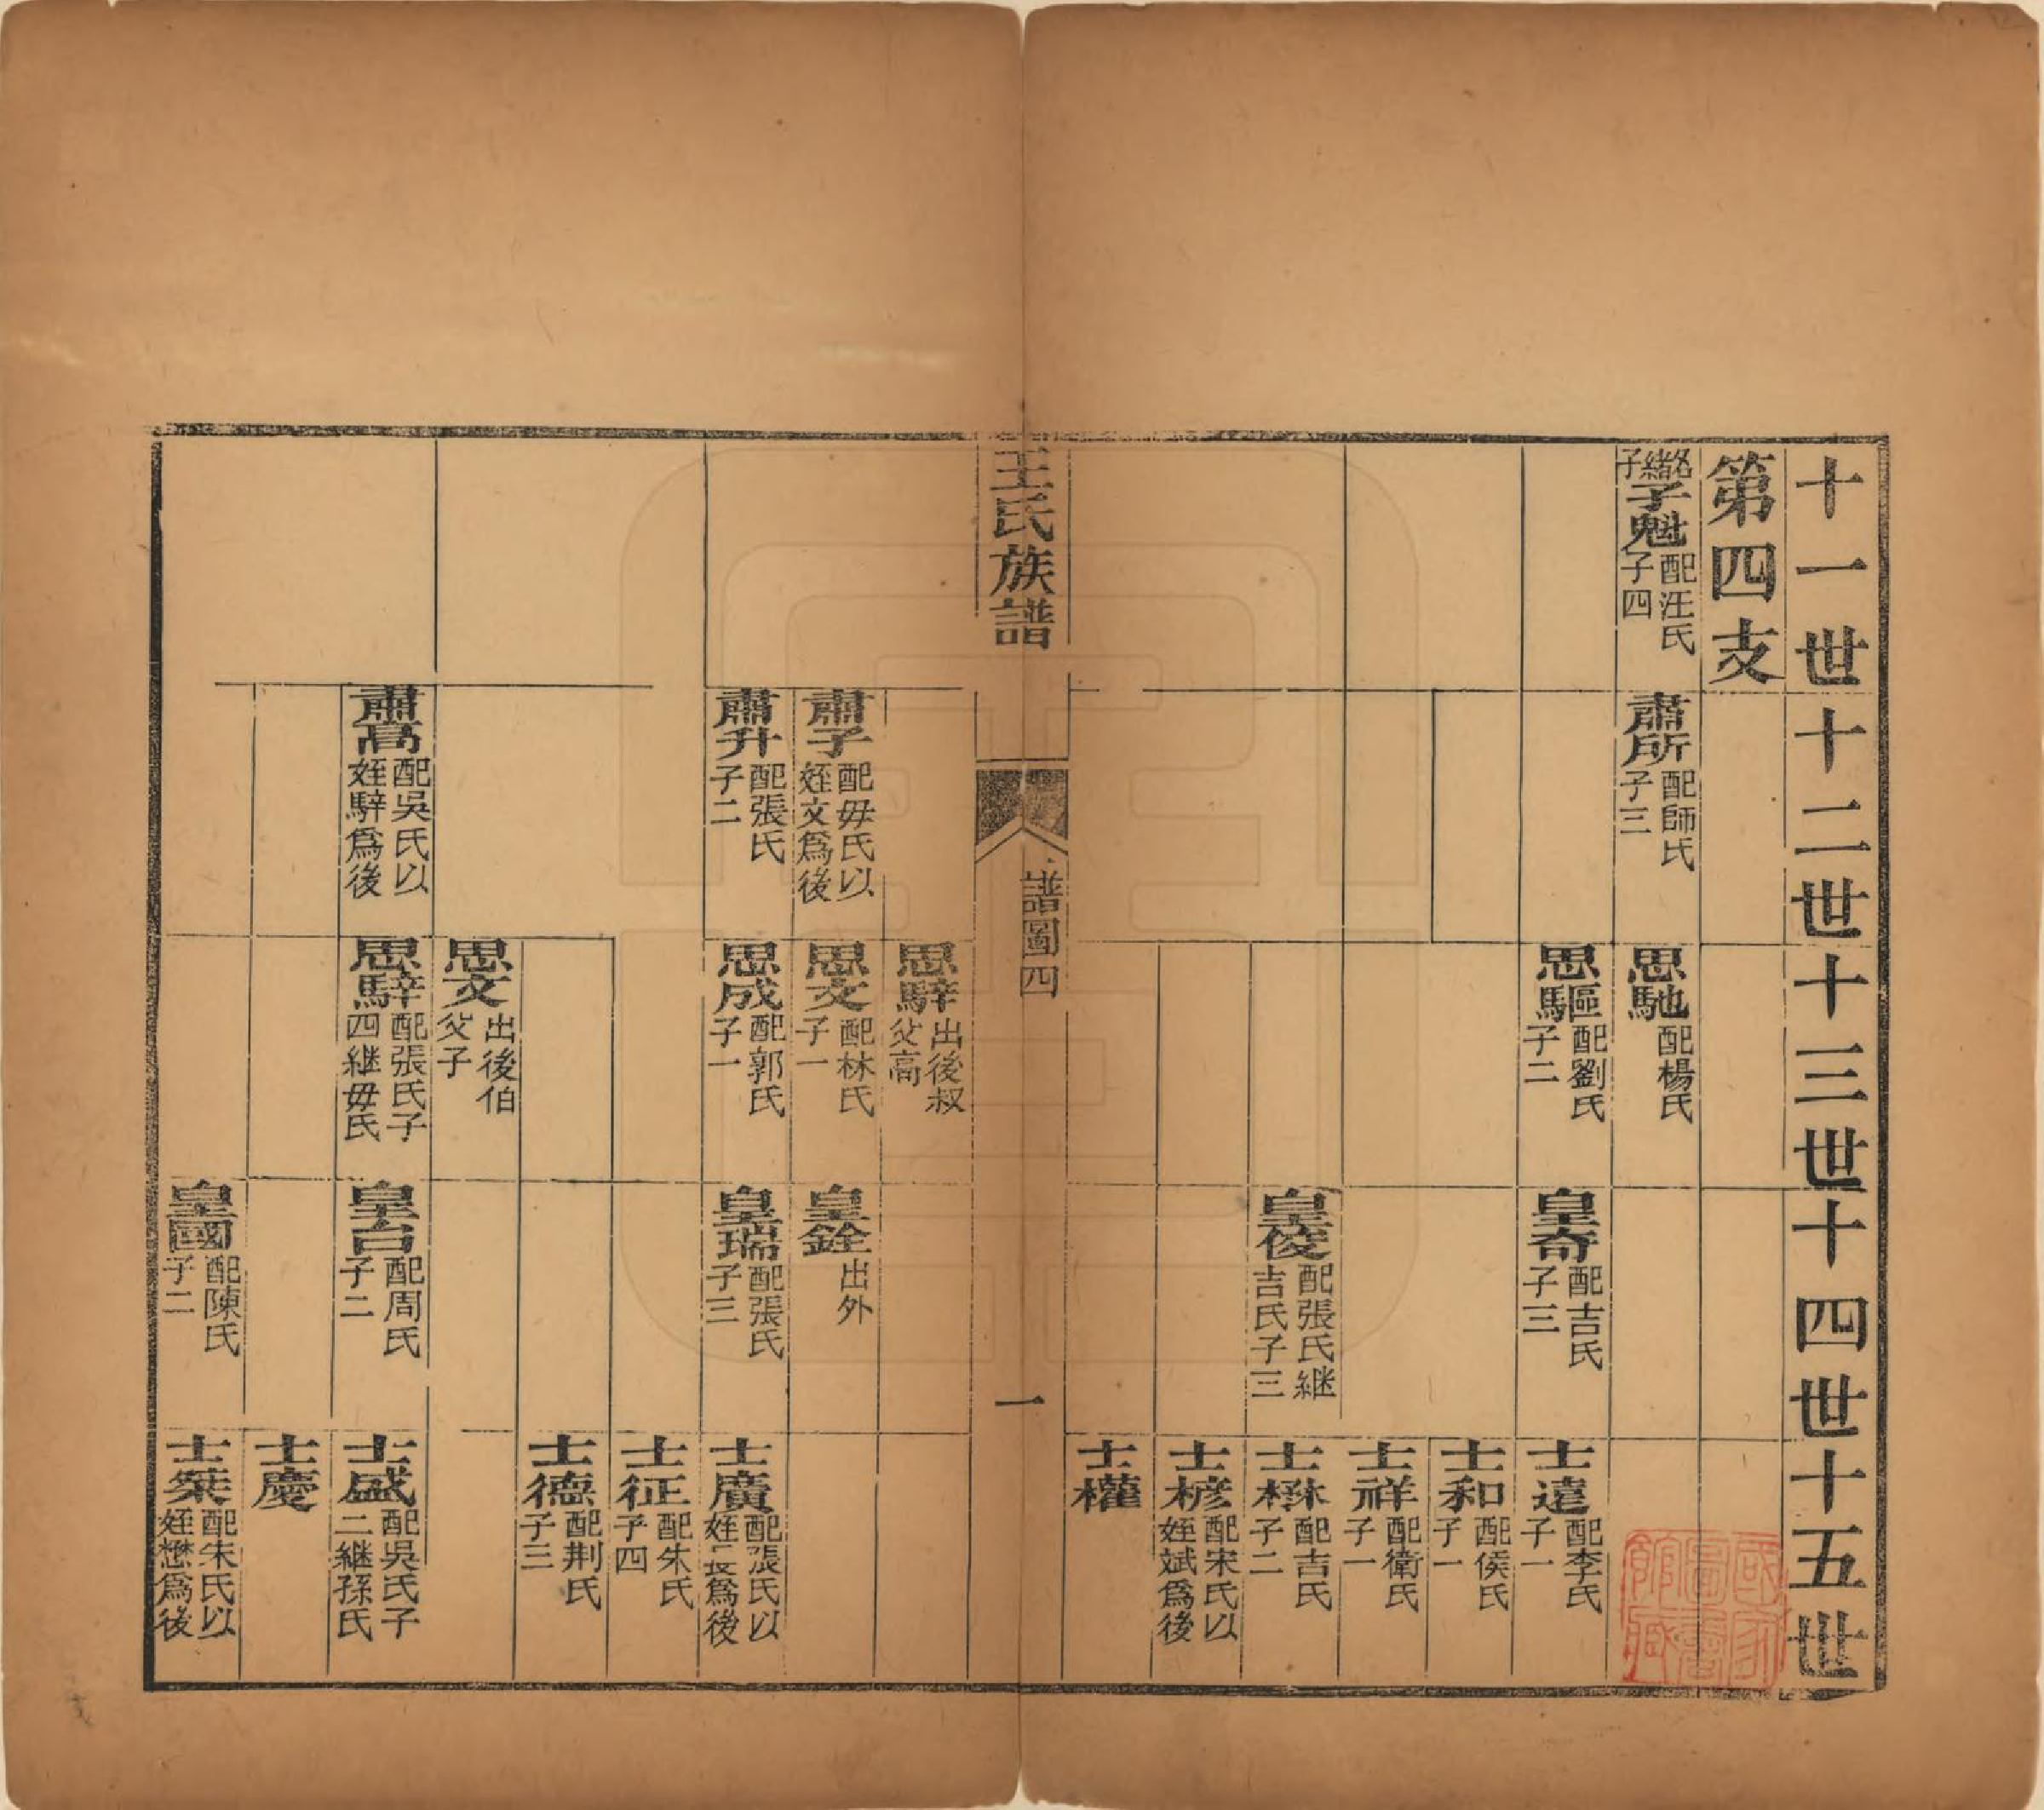 十一世 十二世 十三世 十四世 十五世
第四支
緒子
子魁 配汪氏 子四
肅所 配師氏 子三
思馳 配楊氏
思驅 配劉氏 子二
皇奇 配吉氏 子三
士遠 配李氏 子一
士和 配侯氏 子一
士祥 配衛氏 子一
皇俊 配張氏継 吉氏子三
士楙 配吉氏 子二
士㯋 配宋氏以 姪斌爲後
士權
王氏族譜
譜圖四
一
思騂 出後叔 父高
肅子 配毋氏以 姪文爲後
思文 配林氏 子一
皇銓 出外
肅升 配張氏 子二
思成 配郭氏 子一
皇瑞 配張氏 子三
士廣 配張氏以 姪長爲後
士征 配朱氏 子四
士德 配荆氏 子三
思文 出後伯 父子
肅高 配吳氏以 姪騂爲後
思騂 配張氏子 四継毋氏
皇台 配周氏 子二
士盛 配吳氏子 二継孫氏
士慶
皇國 配陳氏 子二
士榮 配朱氏以 姪懋爲後
國家圖書館藏